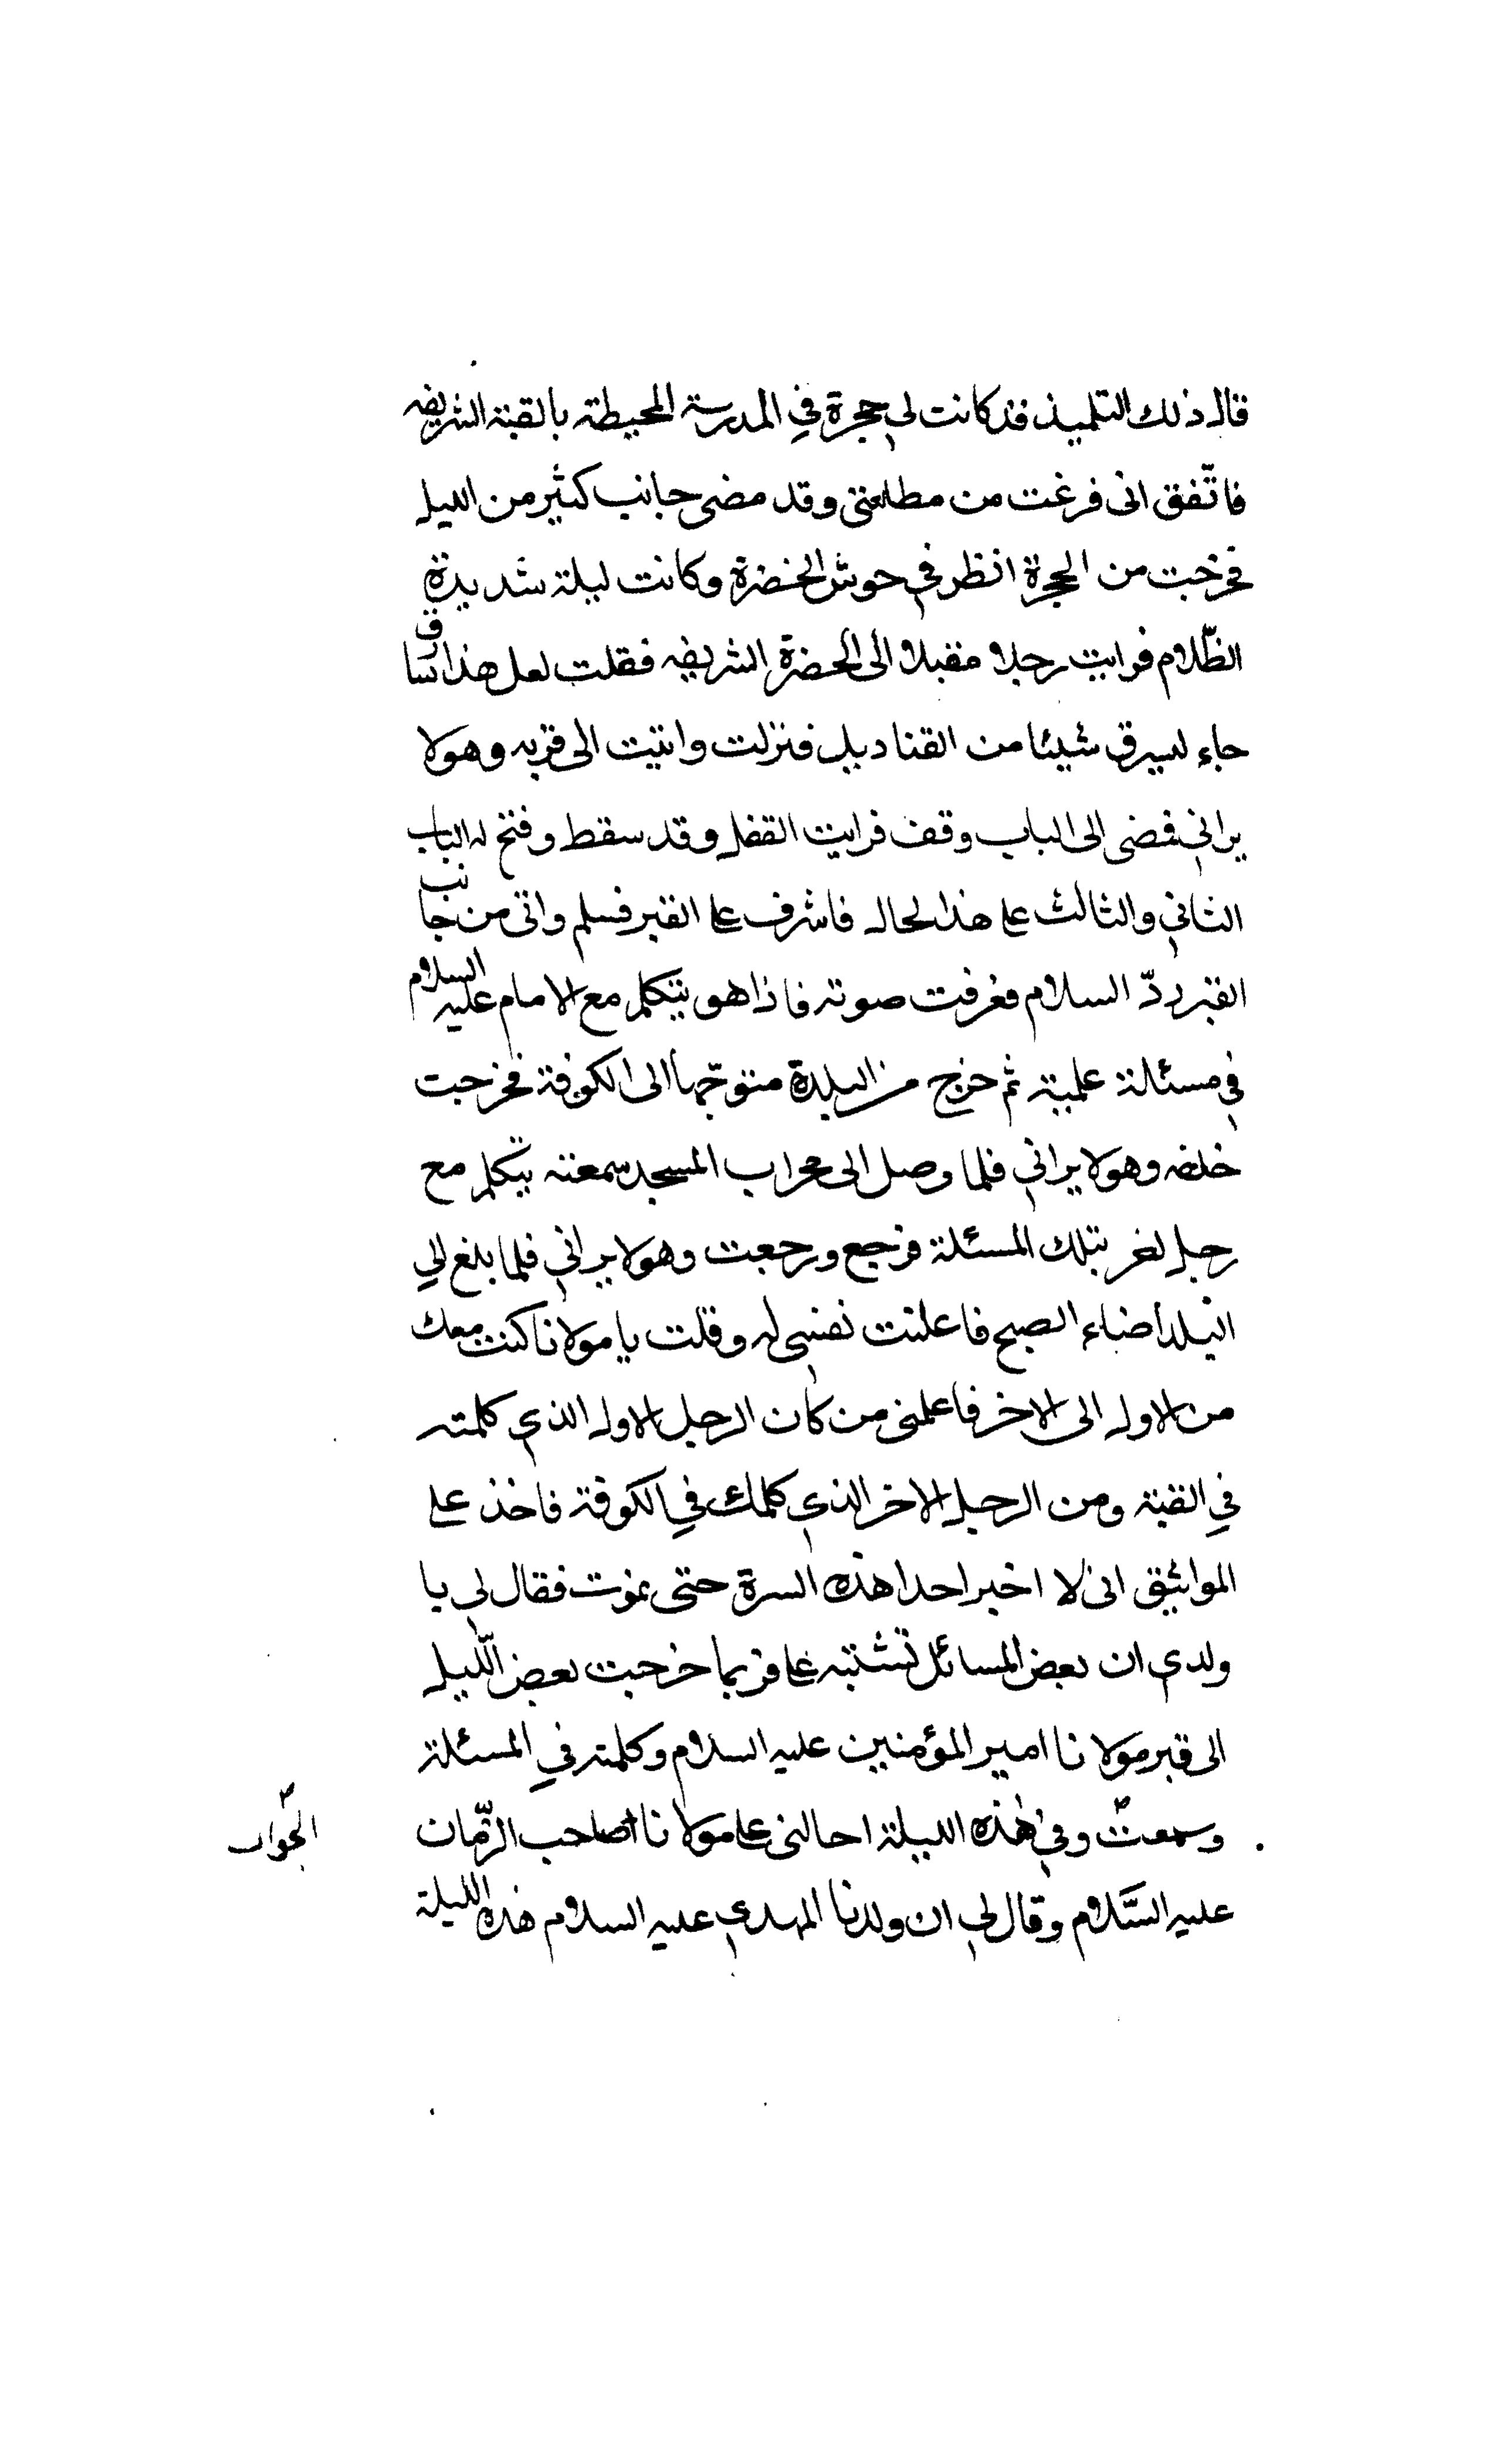 قال ذلك التلميذ قد كانت لي حجرة في المدرسة المحيطة بالقبة الشريفه
فاتّفق انى فرغت من مطالعتي وقد مضى جانب كثير من الليل
فخرجت من الحجرة انظر في حوش الحضرة وكانت ليلة شديدة
الظّلام فرايت رجلا مقبلا الى الحضرة الشريفه فقلت لعل هذا سارق
جاء ليسرق شيئا من القناديل فنزلت واتيت الى قربه وهو لا
يراني فمضى الى الباب وقف فرايت القفل وقد سقط وفتح له الباب
الثاني والثالث على هذا الحال فاشرف على القبر فسلم واتى من جانب
القبر ردّ السلام فعرفت صوته فاذا هو يتكلم مع الامام عليه السلام
في مسئلة علمية ثم خرج من البلدة متوجّها الى الكوفة فخرجت
خلفه وهو لا يراني فلما وصل الى محراب المسجد سمعته يتكلم مع
رجل اخر بتلك المسئلة فرجع ورجعت وهو لا يراني فلما بلغ الي
البلد أضاء الصبح فاعلنت نفسي له وقلت يا مولانا كنت معك
من الاول الى الاخر فاعلمنى من كان الرجل الاول الذي كلمته
في القبة ومن الرجل الاخر الذي كلمك في الكوفة فاخذ على
المواثيق انى لا اخبر احدا هذه السرة حتى يموت فقال لي يا
ولدي ان بعض المسائل تشتبه على فربما خرجت بعض اللّيل
الى قبر مولانا امير المؤمنين عليه السلام وكلمته في المسئلة
وسمعت وفي هذه الليلة احالنى على مولانا صاحب الزّمان
الجواب
عليه السَّلام وقال لي ان ولدنا المهدي عليه السلام هذه الليلة